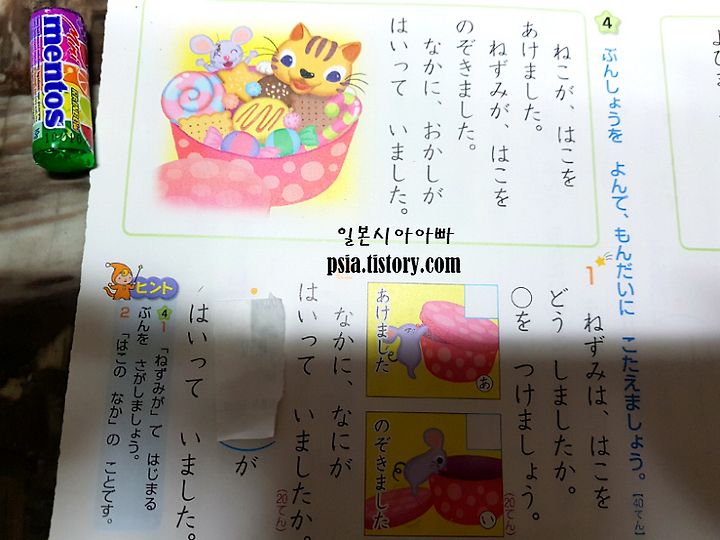 4 ぶんしょうを よんで、もんだいに こたえましょう。【40てん】
ねこが、はこを
あけました。
ねずみが はこを
のぞきました。
なかに、おかしが
はいって いました。
1 ねずみは、はこを
どう しましたか。
○を つけましょう。
(20てん)
あけました
あ
のぞきました
い
なかに、なにが
はいって いましたか。
(20てん)
が
はいって いました。
ヒント
4
1 「ねずみが」で はじまる
ぶんを さがしましょう。
2 「はこの なか」の ことです。
mentos
일본시아아빠
psia.tistory.com